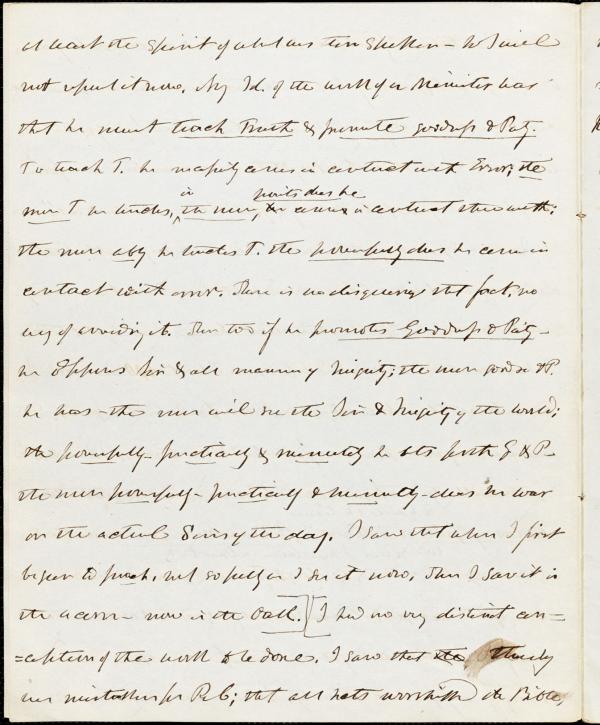 at least the Spirit of what was then Spoken - so I will
not repeat it now. My Id. of the work of a Minister was
that he must teach Truth & promote goodness & Piety.
To teach T. he necessarily comes in contact with Error; the
more T he teaches, in the more points does he come in contact there with;
the more ably he teaches T. the powerfully does he come in
contact with error. There is no disguising that fact, no
way of avoiding it. Then too if he promotes Goodness & Piety -
he Opposes Sin & all manner of Iniquity; the more good & P.
he has - the more will see the Sin & Iniquity of the world;
the powerfully - practically & minutely he sets forth G & P -
the more powerfully - practically & minutely - does he war
on the actual Sins of the day. I saw that when I first
began to preach, not so fully as I see it now. Then I saw it in
the acorn - now in the Oak.] [I had no very distinct con=
=ception of the work to be done. I saw that the
was mistaken for R; that all sects worship the Bible,